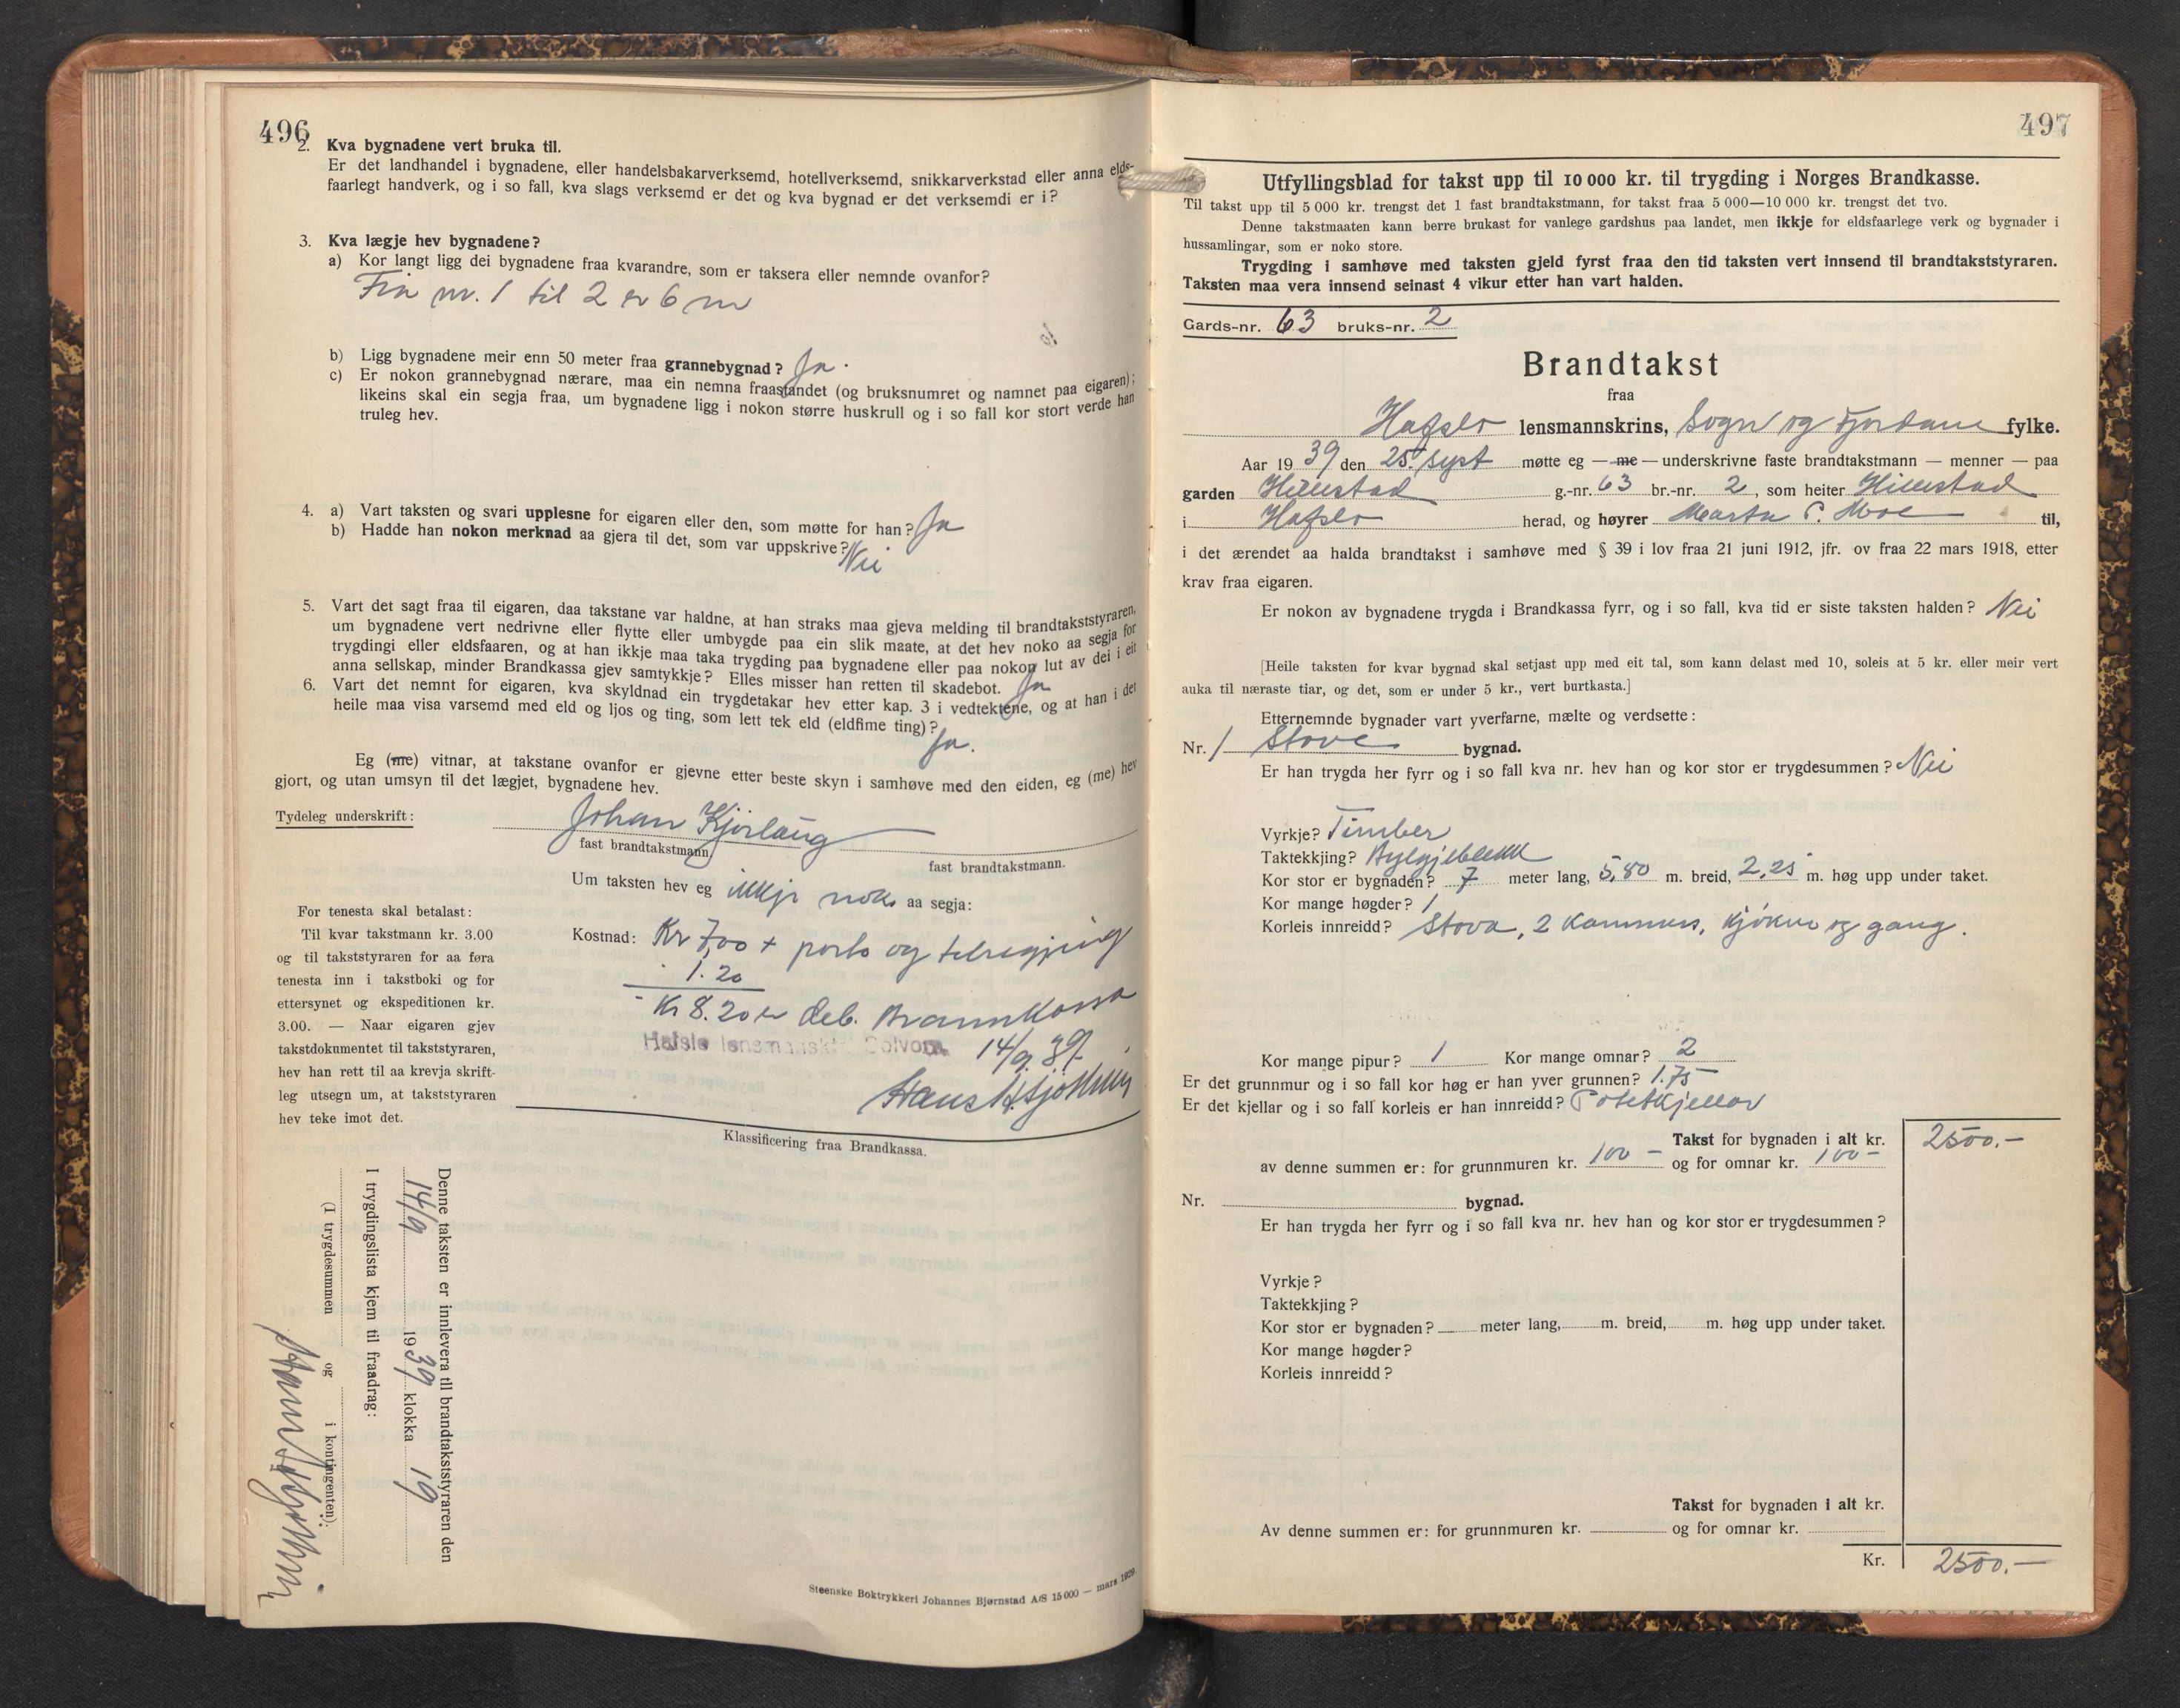 496
2. Kva bygnadene vert bruka til.
Er det landhandel i bygnadene, eller handelsbakarverksemd, hotellverksemd, snikkarverkstad eller anna elds-
faarlegt handverk, og i so fall, kva slags verksemd er det og kva bygnad er det verksemdi er i?
3. Kva lægje hev bygnadene?
a) Kor langt ligg dei bygnadene fraa kvarandre, som er taksera eller nemnde ovanfor?
Frå nr. 1 til 2 er 6 m
b) Ligg bygnadene meir enn 50 meter fraa grannebygnad? Ja.
c) Er nokon grannebygnad nærare, maa ein nemna fraastandet (og bruksnumret og namnet paa eigaren);
likeins skal ein segja fraa, um bygnadene ligg i nokon større huskrull og i so fall kor stort verde han
truleg hev.
4. a) Vart taksten og svari upplesne for eigaren eller den, som møtte for han? Ja
b) Hadde han nokon merknad aa gjera til det, som var uppskrive? Nei
5. Vart det sagt fraa til eigaren, daa takstane var haldne, at han straks maa gjeva melding til brandtakststyraren,
um bygnadene vert nedrivne eller flytte eller umbygde paa ein slik maate, at det hev noko aa segja for
trygdingi eller eldsfaaren, og at han ikkje maa taka trygding paa bygnadene eller paa nokon lut av dei i eit
anna sellskap, minder Brandkassa gjev samtykkje? Elles misser han retten til skadebot. Ja
6. Vart det nemnt for eigaren, kva skyldnad ein trygdetakar hev etter kap. 3 i vedtektene, og at han i det
heile maa visa varsemd med eld og ljos og ting, som lett tek eld (eldfime ting)?
Ja.
Eg (me) vitnar, at takstane ovanfor er gjevne etter beste skyn i samhøve med den eiden, eg (me) hev
gjort, og utan umsyn til det lægjet, bygnadene hev.
Tydeleg underskrift: Johan Kjørlaug
fast brandtakstmann. fast brandtakstmann.
Um taksten hev eg ikkje noko aa segja:
For tenesta skal betalast:
Til kvar takstmann kr. 3.00
og til takststyraren for aa føra
tenesta inn i takstboki og for
ettersynet og ekspeditionen kr.
3.00. — Naar eigaren gjev
takstdokumentet til takststyraren,
hev han rett til aa krevja skrift-
leg utsegn um, at takststyraren
hev teke imot det.
Kostnad: Kr 7,00 + porto og
1.20
Kr 8.20 er deb. Brannkassa
Hafslo lensmannskt. Solvorn. 14/9. 39.
Klassificering fraa Brandkassa.
Denne taksten er innlevera til brandtakststyraren den
14/9 1939 klokka 19
I trygdingslista kjem til fraadrag:
(I trygdesummen og i kontingenten):
Steenske Boktrykkeri Johannes Bjørnstad A/S 15000 — mars 1929.
497
Utfyllingsblad for takst upp til 10 000 kr. til trygding i Norges Brandkasse.
Til takst upp til 5 000 kr. trengst det 1 fast brandtakstmann, for takst fraa 5 000—10 000 kr. trengst det tvo.
Denne takstmaaten kann berre brukast for vanlege gardshus paa landet, men ikkje for eldsfaarlege verk og bygnader i
hussamlingar, som er noko store.
Trygding i samhøve med taksten gjeld fyrst fraa den tid taksten vert innsend til brandtakststyraren.
Taksten maa vera innsend seinast 4 vikur etter han vart halden.
Gards-nr. 63 bruks-nr. 2
Brandtakst
fraa
Hafslo lensmannskrins, Sogn og Fjordane fylke.
Aar 1939 den 25. sept møtte eg — me — underskrivne faste brandtakstmann — menner — paa
garden Hillestad g.-nr. 63 br.-nr. 2, som heiter Hillestad
i Hafslo herad, og høyrer Marta P. Moe til,
i det ærendet aa halda brandtakst i samhøve med § 39 i lov fraa 21 juni 1912, jfr. ov fraa 22 mars 1918, etter
krav fraa eigaren.
Er nokon av bygnadene trygda i Brandkassa fyrr, og i so fall, kva tid er siste taksten halden? Nei
[Heile taksten for kvar bygnad skal setjast upp med eit tal, som kann delast med 10, soleis at 5 kr. eller meir vert
auka til næraste tiar, og det, som er under 5 kr., vert burtkasta.]
Etternemnde bygnader vart yverfarne, mælte og verdsette:
Nr. 1 Stove bygnad.
Er han trygda her fyrr og i so fall kva nr. hev han og kor stor er trygdesummen? Nei
Vyrkje? Timber
Taktekkjing? Bylgjeblekk
Kor stor er bygnaden? 7 meter lang, 5,80 m. breid, 2,25 m. høg upp under taket.
Kor mange høgder? 1
Korleis innreidd? Stova, 2 kammers, kjøken og gang.
Kor mange pipur? 1 Kor mange omnar? 2
Er det grunnmur og i so fall kor høg er han yver grunnen? 1.75
Er det kjellar og i so fall korleis er han innreidd? Potetkjellar
Takst for bygnaden i alt kr. 2500.-
av denne summen er: for grunnmuren kr. 100 - og for omnar kr. 100 -
Nr. bygnad.
Er han trygda her fyrr og i so fall kva nr. hev han og kor stor er trygdesummen?
Vyrkje?
Taktekkjing?
Kor stor er bygnaden? meter lang, m. breid, m. høg upp under taket.
Kor mange høgder?
Korleis innreidd?
Takst for bygnaden i alt kr.
Av denne summen er: for grunnmuren kr. og for omnar kr.
Kr. 2500.-